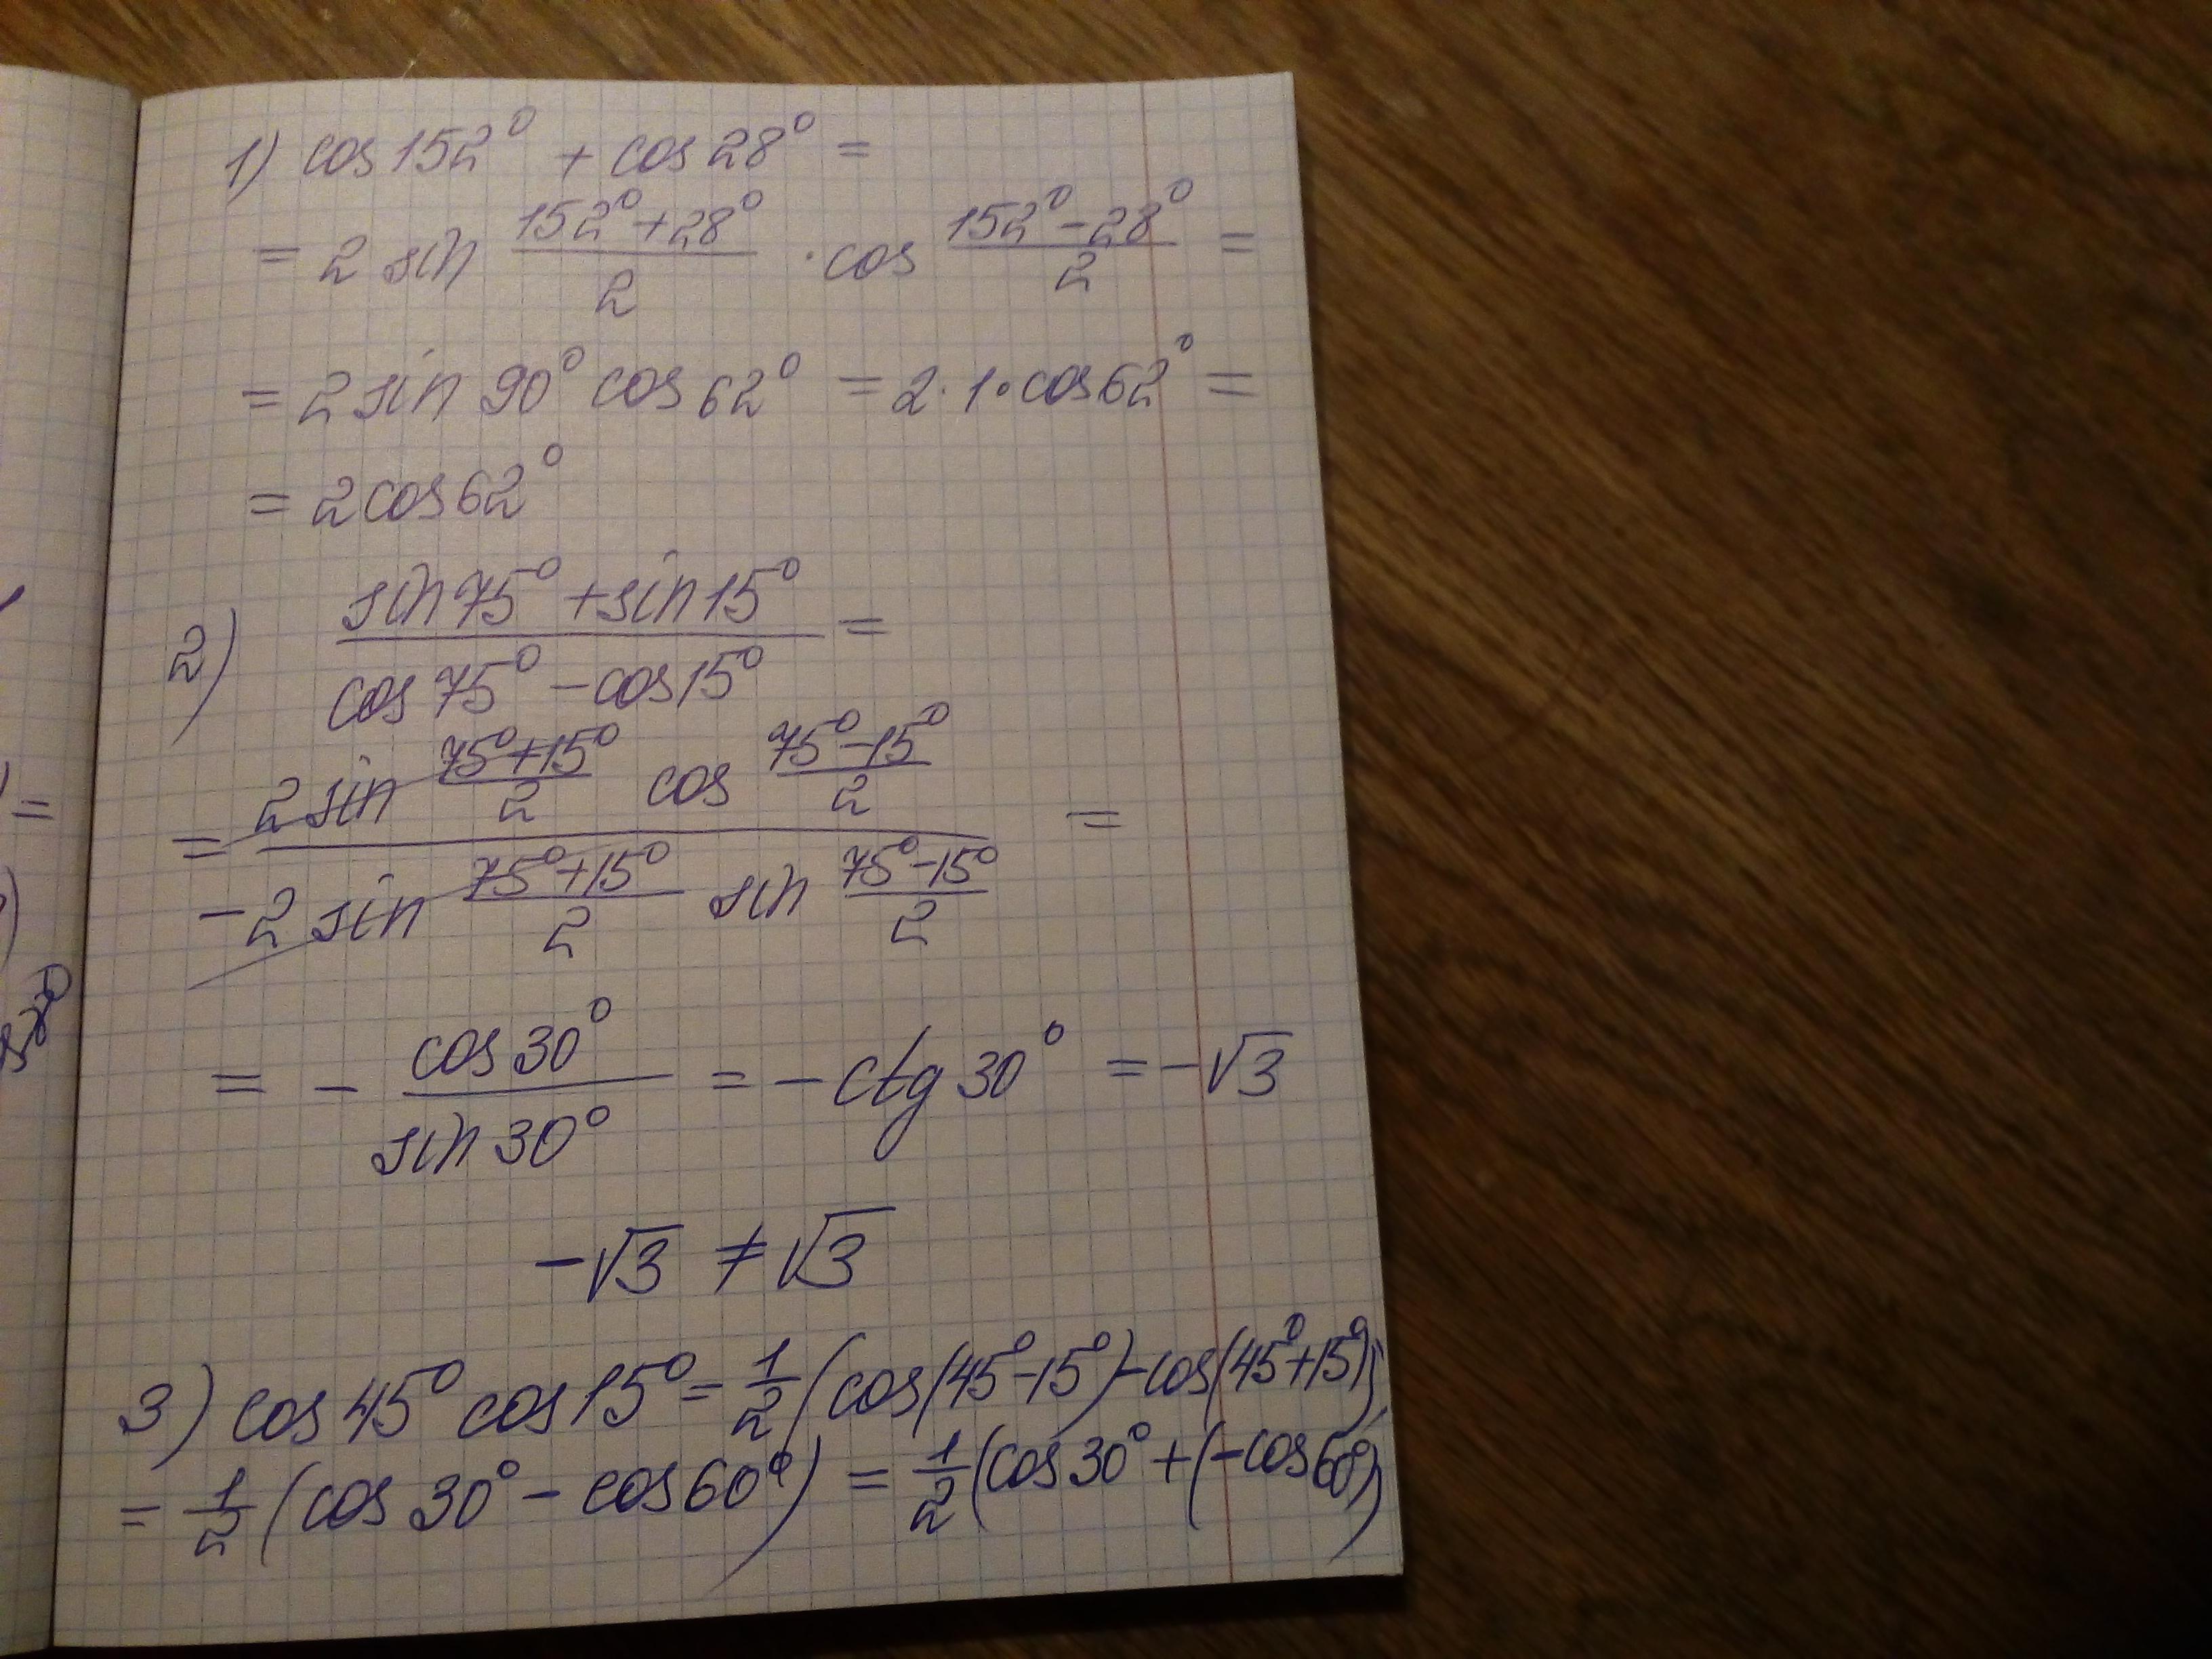 1) cos 152° + cos 28° =
= 2 sin (152° + 28°)/2 · cos (152° - 28°)/2 =
= 2 sin 90° cos 62° = 2 · 1 · cos 62° =
= 2 cos 62°
2) (sin 75° + sin 15°)/(cos 75° - cos 15°) =
= (2 sin (75° + 15°)/2 cos (75° - 15°)/2)/(-2 sin (75° + 15°)/2 sin (75° - 15°)/2) =
= - cos 30°/sin 30° = - ctg 30° = -√3
-√3 ≠ √3
3) cos 45° cos 15° = 1/2 (cos(45° - 15°) - cos(45° + 15°))
= 1/2 (cos 30° - cos 60°) = 1/2 (cos 30° + (-cos 60°)